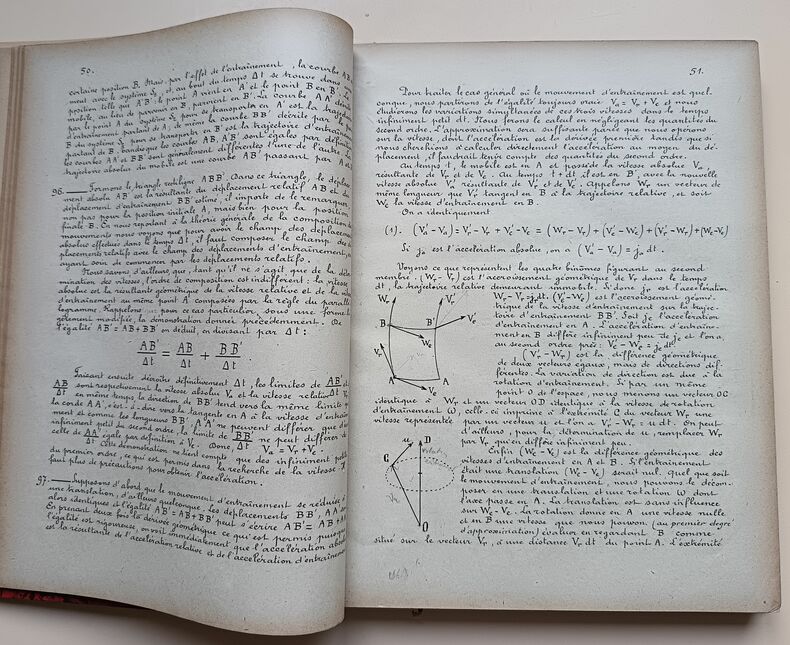 50.
certaine position B. Mais, par l'effet de l'entraînement, la courbe AB
ment avec le système S₂ et, au bout du temps Δt se trouve dans
position telle que A'B' : le point A vient en A' et le point B en B'. Le
mobile, au lieu de parvenir en B, parvient en B'. La courbe AA'
par le point A du système S₂ pour se transporter en A' est la trajec
d'entraînement partant de A, de même la courbe BB' décrite par le
B du système S₂ pour se transporter en B' est la trajectoire d'entraîn
partant de B. Tandis que les courbes AB, A'B' sont égales par définit
les courbes AA' et BB' sont généralement différentes l'une de l'autre.
trajectoire absolue du mobile est une courbe AB' passant par A,
96. — Formons le triangle rectiligne ABB'. Dans ce triangle, le dépla
ment absolu AB' est la résultante du déplacement relatif AB et
déplacement d'entraînement BB' estimé, il importe de le remarquer
non pas pour la position initiale A, mais bien pour la position
finale B. En nous reportant à la théorie générale de la composition
mouvements nous voyons que pour avoir le champ des déplacem
absolus effectués dans le temps Δt, il faut composer le champ des
placements relatifs avec le champ des déplacements d'entraînement,
ayant soin de commencer par les déplacements relatifs.
Nous savons d'ailleurs que, tant qu'il ne s'agit que de la déter
mination des vitesses, l'ordre de composition est indifférent : la vitesse
absolue est la résultante géométrique de la vitesse relative et de la vit
d'entraînement au même point A composées par la règle du parallé
logramme. Rappelons, pour ce cas particulier, sous une forme
légèrement modifiée, la démonstration donnée précédemment. De
l'égalité AB' = AB + BB' on déduit, en divisant par Δt :
AB'/Δt = AB/Δt + BB'/Δt .
Faisant ensuite décroître définitivement Δt, les limites de AB'/Δt et
AB/Δt sont respectivement la vitesse absolue Va et la vitesse relative Vr
en même temps, la direction de BB' tend vers la même limite que
la corde AA', c'est-à-dire vers la tangente en A à la vitesse d'entraîn
ment et comme les longueurs BB', AA' ne peuvent différer que d'un
infiniment petit du second ordre, la limite de BB'/Δt ne peut différer de
celle de AA'/Δt égale par définition à Ve. Donc, Va = Vr + Ve.
Cette démonstration ne tient compte que des infiniment petits
du premier ordre, ce qui est permis dans la recherche de la vitesse. Il
faut plus de précautions pour obtenir l'accélération.
97. — Supposons d'abord que le mouvement d'entraînement se réduise à
une translation, d'ailleurs quelconque. Les déplacements BB', AA' sont
alors identiques et l'égalité AB' = AB + BB' peut s'écrire AB' = AB + AA'
En prenant deux fois la dérivée géométrique ce qui est permis puisque
l'égalité est rigoureuse, on voit immédiatement que l'accélération absolue
est la résultante de l'accélération relative et de l'accélération d'entraînem
51.
Pour traiter le cas général où le mouvement d'entraînement est quel-
conque, nous partirons de l'égalité toujours vraie Va = Vr + Ve et nous
étudierons les variations simultanées de ces trois vitesses dans le temps
infiniment petit dt. Nous ferons le calcul en négligeant les quantités du
second ordre. L'approximation sera suffisante parce que nous opérons
sur la vitesse, dont l'accélération est la dérivée première tandis que si
nous cherchions à calculer directement l'accélération au moyen du dé-
placement, il faudrait tenir compte des quantités du second ordre.
Au temps t, le mobile est en A et possède la vitesse absolue Va,
résultante de Vr et de Ve. Au temps t + dt, il est en B', avec la nouvelle
vitesse absolue V'a résultante de V'r et de V'e. Appelons Wr un vecteur de
même longueur que V'r tangent en B à la trajectoire relative, et soit
We la vitesse d'entraînement en B.
On a identiquement
(1). (V'a - Va) = V'r - Vr + V'e - Ve = (Wr - Vr) + (V'e - We) + (V'r - Wr) + (We - Ve)
Si ja est l'accélération absolue, on a (V'a - Va) = ja dt.
Voyons ce que représentent les quatre binômes figurant au second
membre. (Wr - Vr) est l'accroissement géométrique de Vr dans le temps
dt, la trajectoire relative demeurant immobile. Si donc jr est l'accélération
Wr - Vr = jr dt. (V'e - We) est l'accroissement géomé-
trique de la vitesse d'entraînement sur la trajec-
toire d'entraînement BB'. Soit je l'accélération
d'entraînement en A. L'accélération d'entraîne-
ment en B diffère infiniment peu de je et l'on a,
au second ordre près : V'e - We = je dt.
(V'r - Wr) est la différence géométrique
de deux vecteurs égaux, mais de directions dif-
férentes. La variation de direction est due à la
rotation d'entraînement. Si par un même
point O de l'espace, nous menons un vecteur OC
identique à Wr et un vecteur OD identique à V'r la vitesse de rotation
d'entraînement ω, celle-ci imprime à l'extrémité C du vecteur Wr une
vitesse représentée par un vecteur u et l'on a V'r - Wr = u dt. On peut
d'ailleurs, pour la détermination de u, remplacer Wr
par Vr qui en diffère infiniment peu.
Enfin (We - Ve) est la différence géométrique des
vitesses d'entraînement en A et B. Si l'entraînement
était une translation (We - Ve) serait nul. Quel que soit
le mouvement d'entraînement, nous pouvons le décom-
poser en une translation et une rotation ω dont
l'axe passe en A. La translation est sans influence
sur We - Ve. La rotation donne en A une vitesse nulle
et en B une vitesse que nous pouvons (au premier degré
d'approximation) évaluer en regardant B comme
situé sur le vecteur Vr, à une distance Vr dt du point A. L'extrémité
Wr
V'r
B
B'
V'e
We
Vr
A
A
Ve
u
D
C
Vr
O